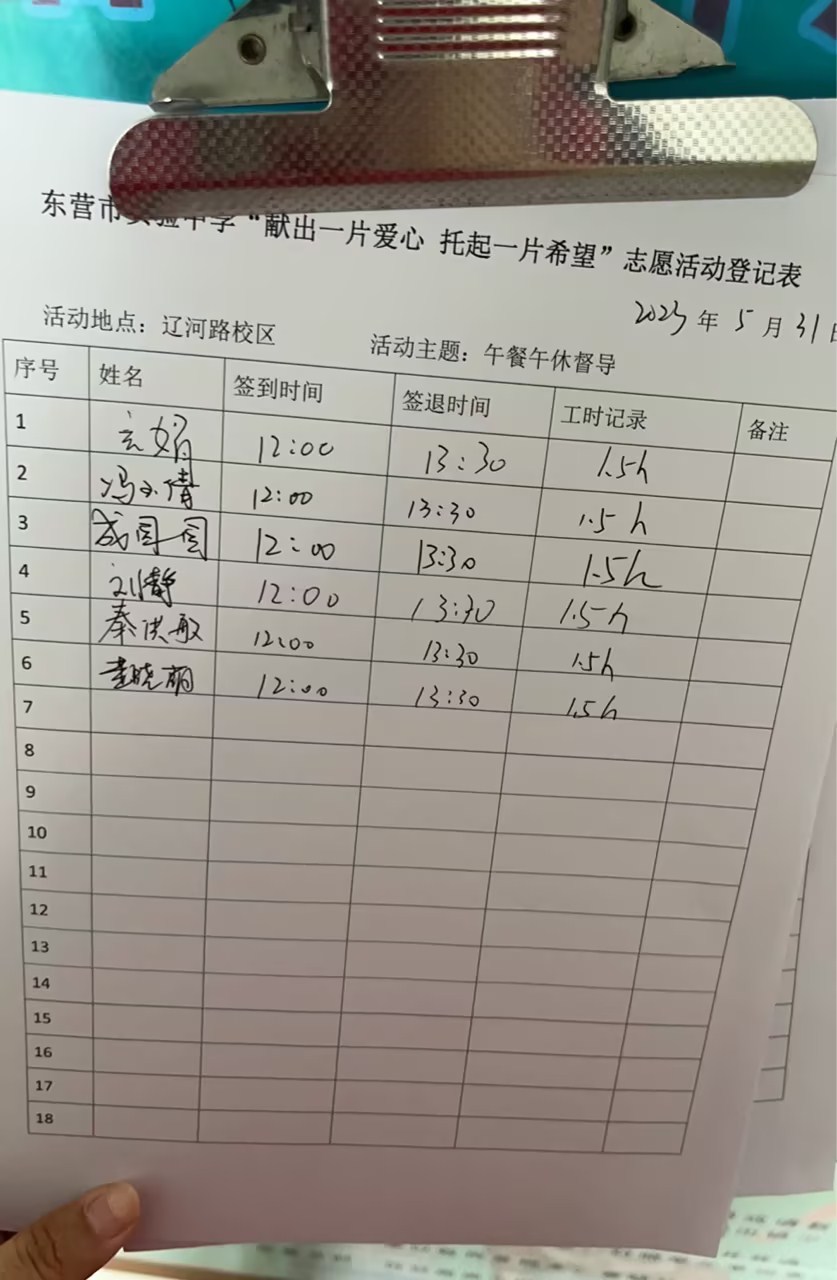 东营市实验中学“献出一片爱心 托起一片希望”志愿活动登记表
2023年5月31日
活动地点：辽河路校区 活动主题：午餐午休督导
序号 姓名 签到时间 签退时间 工时记录 备注
1 玄娟 12:00 13:30 1.5h
2 冯小倩 12:00 13:30 1.5h
3 成園園 12:00 13:30 1.5h
4 刘静 12:00 13:30 1.5h
5 秦洪敏 12:00 13:30 1.5h
6 晓丽 12:00 13:30 1.5h
7
8
9
10
11
12
13
14
15
16
17
18